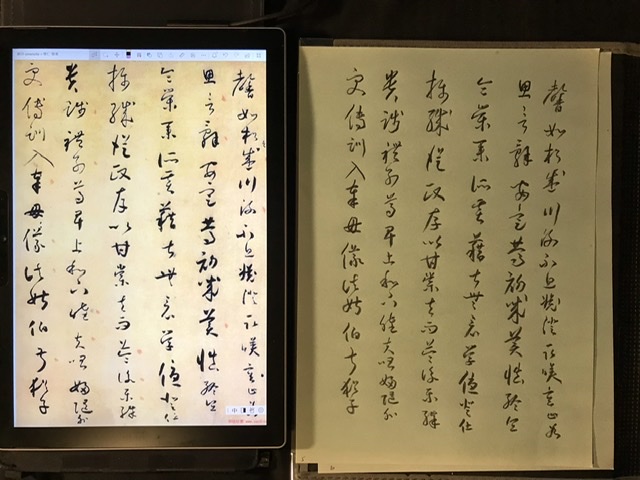 馨如松盛川流不息淵澄取映容止若
思言辭安定篤初誠美慎終宜
令榮業所基藉甚無竟學優登仕
攝職從政存以甘棠去而益詠樂殊
貴賤禮別尊卑上和下睦夫唱婦隨外
受傅訓入奉母儀諸姑伯叔猶子
馨如松盛川流不息淵澄取映容止若
思言辭安定篤初誠美慎終宜
令榮業所基藉甚無竟學優登仕
攝職從政存以甘棠去而益詠樂殊
貴賤禮別尊卑上和下睦夫唱婦隨外
受傅訓入奉母儀諸姑伯叔猶子